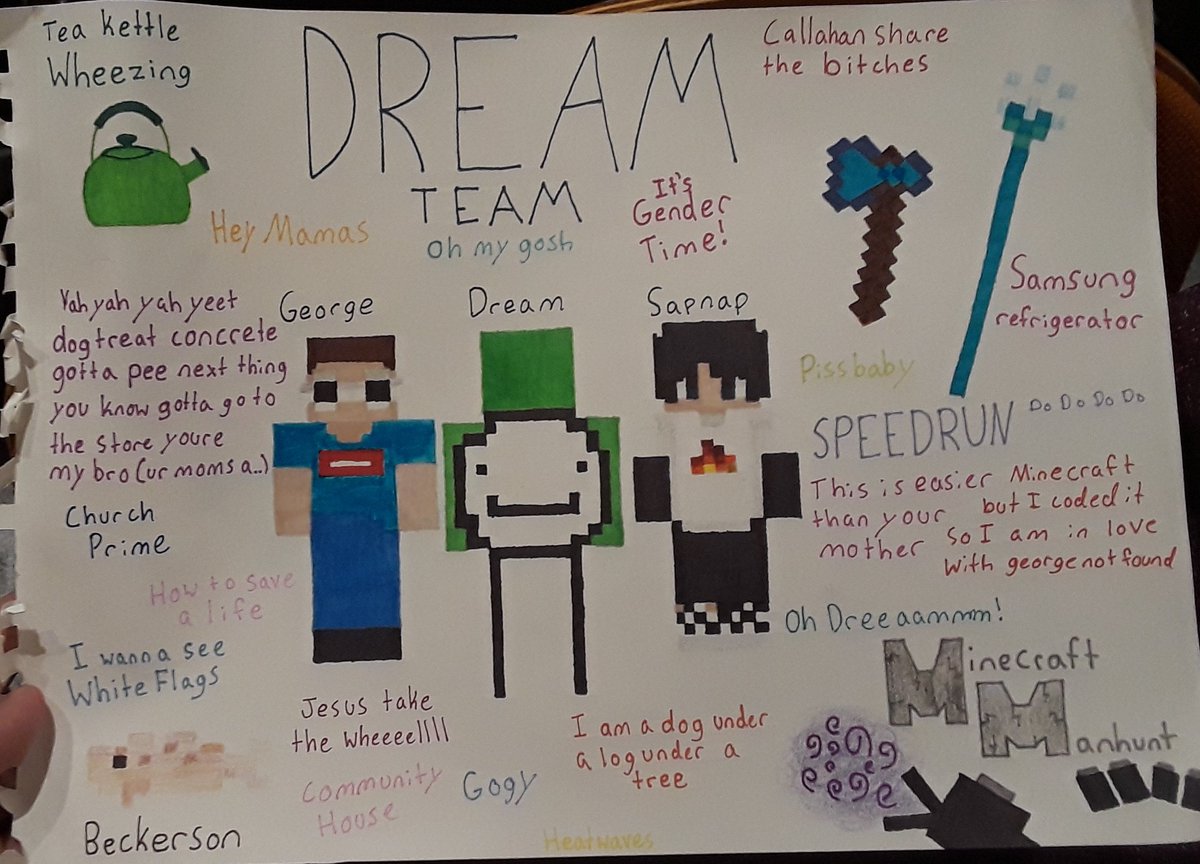 Tea kettle
Wheezing
DREAM
TEAM
Callahan share
the bitches
Hey Mamas
Oh my gosh
It's
Gender
Time!
Samsung
refrigerator
Yah yah yah yeet
dog treat concrete
gotta pee next thing
you know gotta go to
the store youre
my bro (ur moms a..)
George
Dream
Sapnap
Pissbaby
SPEEDRUN Do Do Do Do
This is easier
than your
mother
Minecraft
but I coded it
so I am in love
with georgenotfound
Church
Prime
How to save
a life
Oh Dreeaammm!
I wanna see
White Flags
Minecraft
Manhunt
Jesus take
the wheeeellll
I am a dog under
a log under a
tree
Community
House
Gogy
Beckerson
Heatwaves